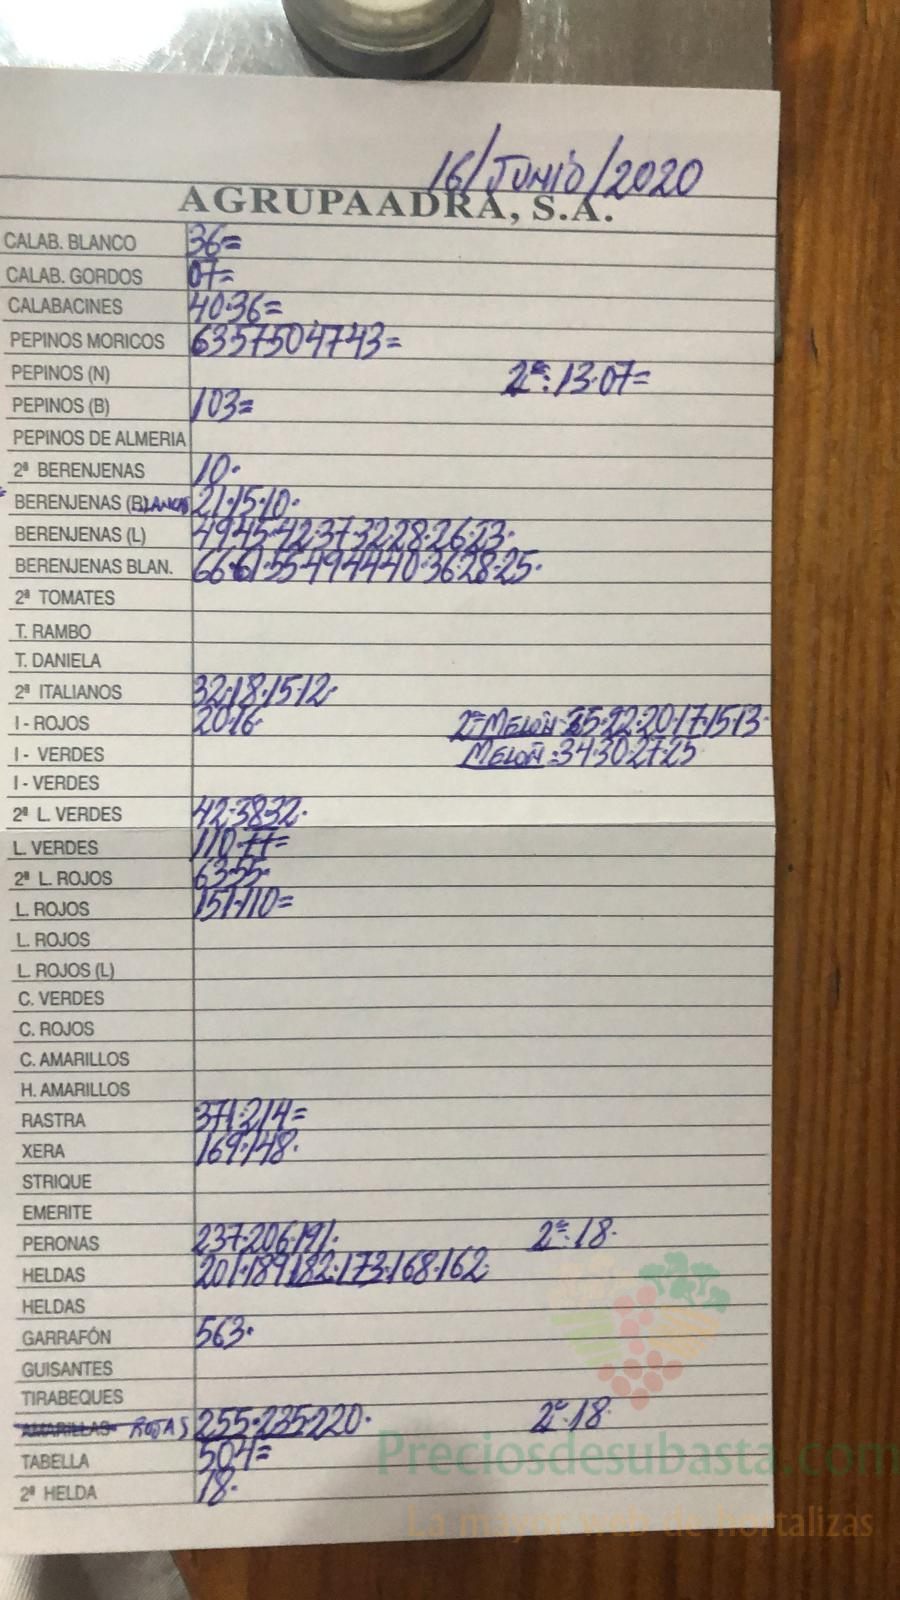 16/JUNIO/2020
AGRUPAADRA, S.A.
CALAB. BLANCO 36=
CALAB. GORDOS 07=
CALABACINES 40·36=
PEPINOS MORICOS 6357504743=
PEPINOS (N) 2ª: 13·07=
PEPINOS (B) 103=
PEPINOS DE ALMERIA
2ª BERENJENAS 10·
BERENJENAS (BLANCAS 21·15·10·
BERENJENAS (L) 4945·42·37·32·28·26·23·
BERENJENAS BLAN. 66·61·55·49444036·28·25·
2ª TOMATES
T. RAMBO
T. DANIELA
2ª ITALIANOS 32·18·15·12·
I - ROJOS 20·16· 2ª MELON: 35·22·20·17·15·13·
I - VERDES MELON: 34·30·27·25
I - VERDES
2ª L. VERDES 42·3832·
L. VERDES 110·77=
2ª L. ROJOS 6355·
L. ROJOS 151·110=
L. ROJOS
L. ROJOS (L)
C. VERDES
C. ROJOS
C. AMARILLOS
H. AMARILLOS
RASTRA 371·214=
XERA 169·148·
STRIQUE
EMERITE
PERONAS 237·206·191· 2ª·18·
HELDAS 201·189182·173·168·162
HELDAS
GARRAFÓN 563·
GUISANTES
TIRABEQUES
AMARILLAS ROJAS 255·235·220· 2ª·18
TABELLA 504=
2ª HELDA 18·
Preciosdesubasta.com
La mayor web de hortalizas